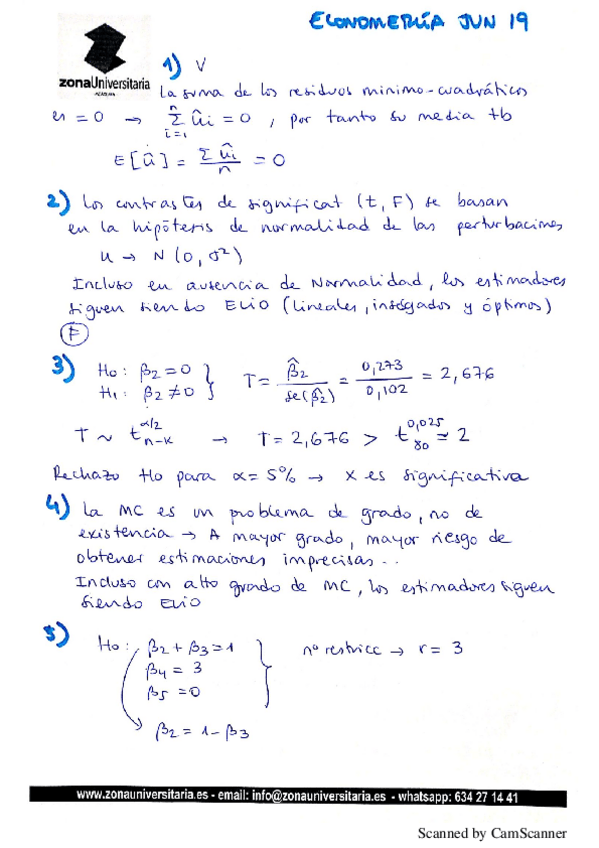 ECONOMETRÍA JUN 19
zonaUniversitaria
ACADEMIA
1) V
La suma de los residuos mínimo-cuadráticos
es = 0 → Σ ûi = 0, por tanto su media tb
n
i=1
E[û] = Σ ûi / n = 0
2) Los contrastes de significat (t, F) se basan
en la hipótesis de normalidad de las perturbaciones
u → N(0, σ²)
Incluso en ausencia de Normalidad, los estimadores
siguen siendo ELIO (lineales, insesgados y óptimos)
F
3) H0: β2 = 0 } T = β̂2 / se(β̂2) = 0,273 / 0,102 = 2,676
H1: β2 ≠ 0
T ~ t α/2 n-k → T = 2,676 > t 0,025 80 ≃ 2
Rechazo H0 para α = 5% → X es significativa
4) La MC es un problema de grado, no de
existencia → A mayor grado, mayor riesgo de
obtener estimaciones imprecisas..
Incluso con alto grado de MC, los estimadores siguen
siendo ELIO
5) H0: β2 + β3 = 1 } nº restricc → r = 3
β4 = 3
β5 = 0
β2 = 1 - β3
www.zonauniversitaria.es - email: info@zonauniversitaria.es - whatsapp: 634 27 14 41
Scanned by CamScanner